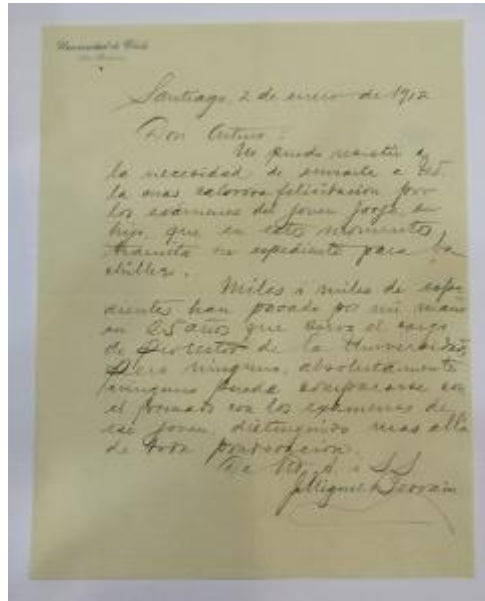 Universidad de Chile
Santiago, 2 de enero de 1912
Don Arturo:
No puedo resistir a
la necesidad de enviarle a Ud.
la mas calorosa felicitacion por
los exámenes del joven Jorje, su
hijo, que en este momento
su espediente para ba-
chiller.
Miles i miles de espe-
dientes han pasado por mi mano
en 25 años que sirvo el cargo
de Prorector de la Universidad,
Pero ninguno, absolutamente
ninguno puede compararse con
el formado con los exámenes de
ese joven, distinguido mas allá
de toda ponderacion.
De Ud. A. i S.S.
J. Miguel